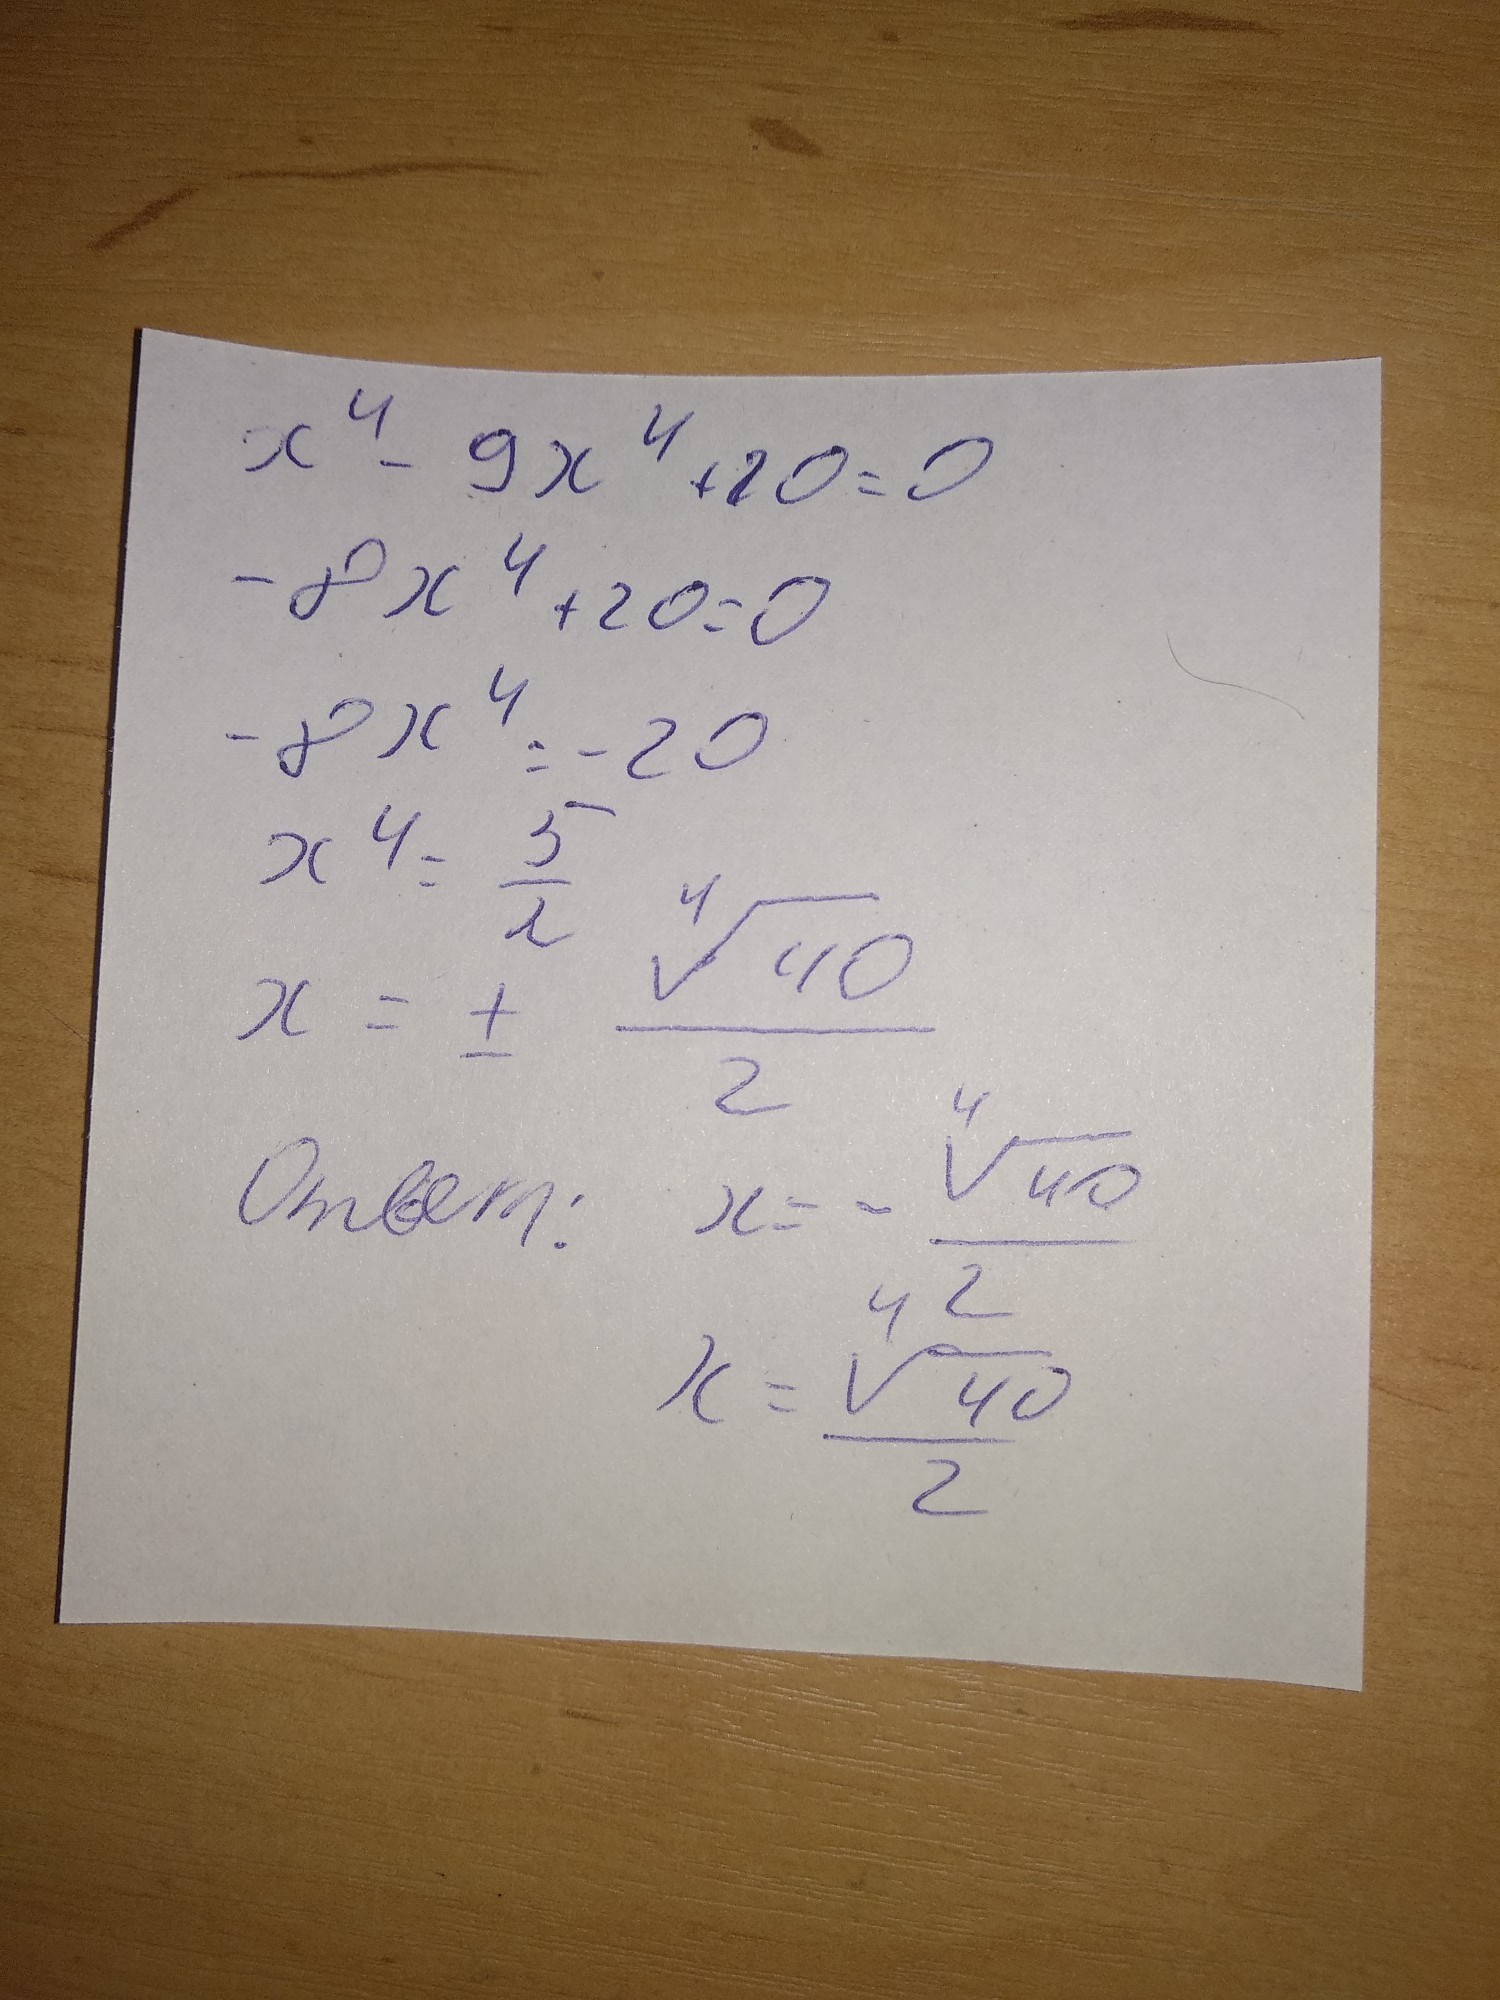 x⁴ - 9x⁴ + 20 = 0
-8x⁴ + 20 = 0
-8x⁴ = -20
x⁴ = 5/2
x = ± ⁴√40/2
Ответ: x = - ⁴√40/2
x = ⁴√40/2